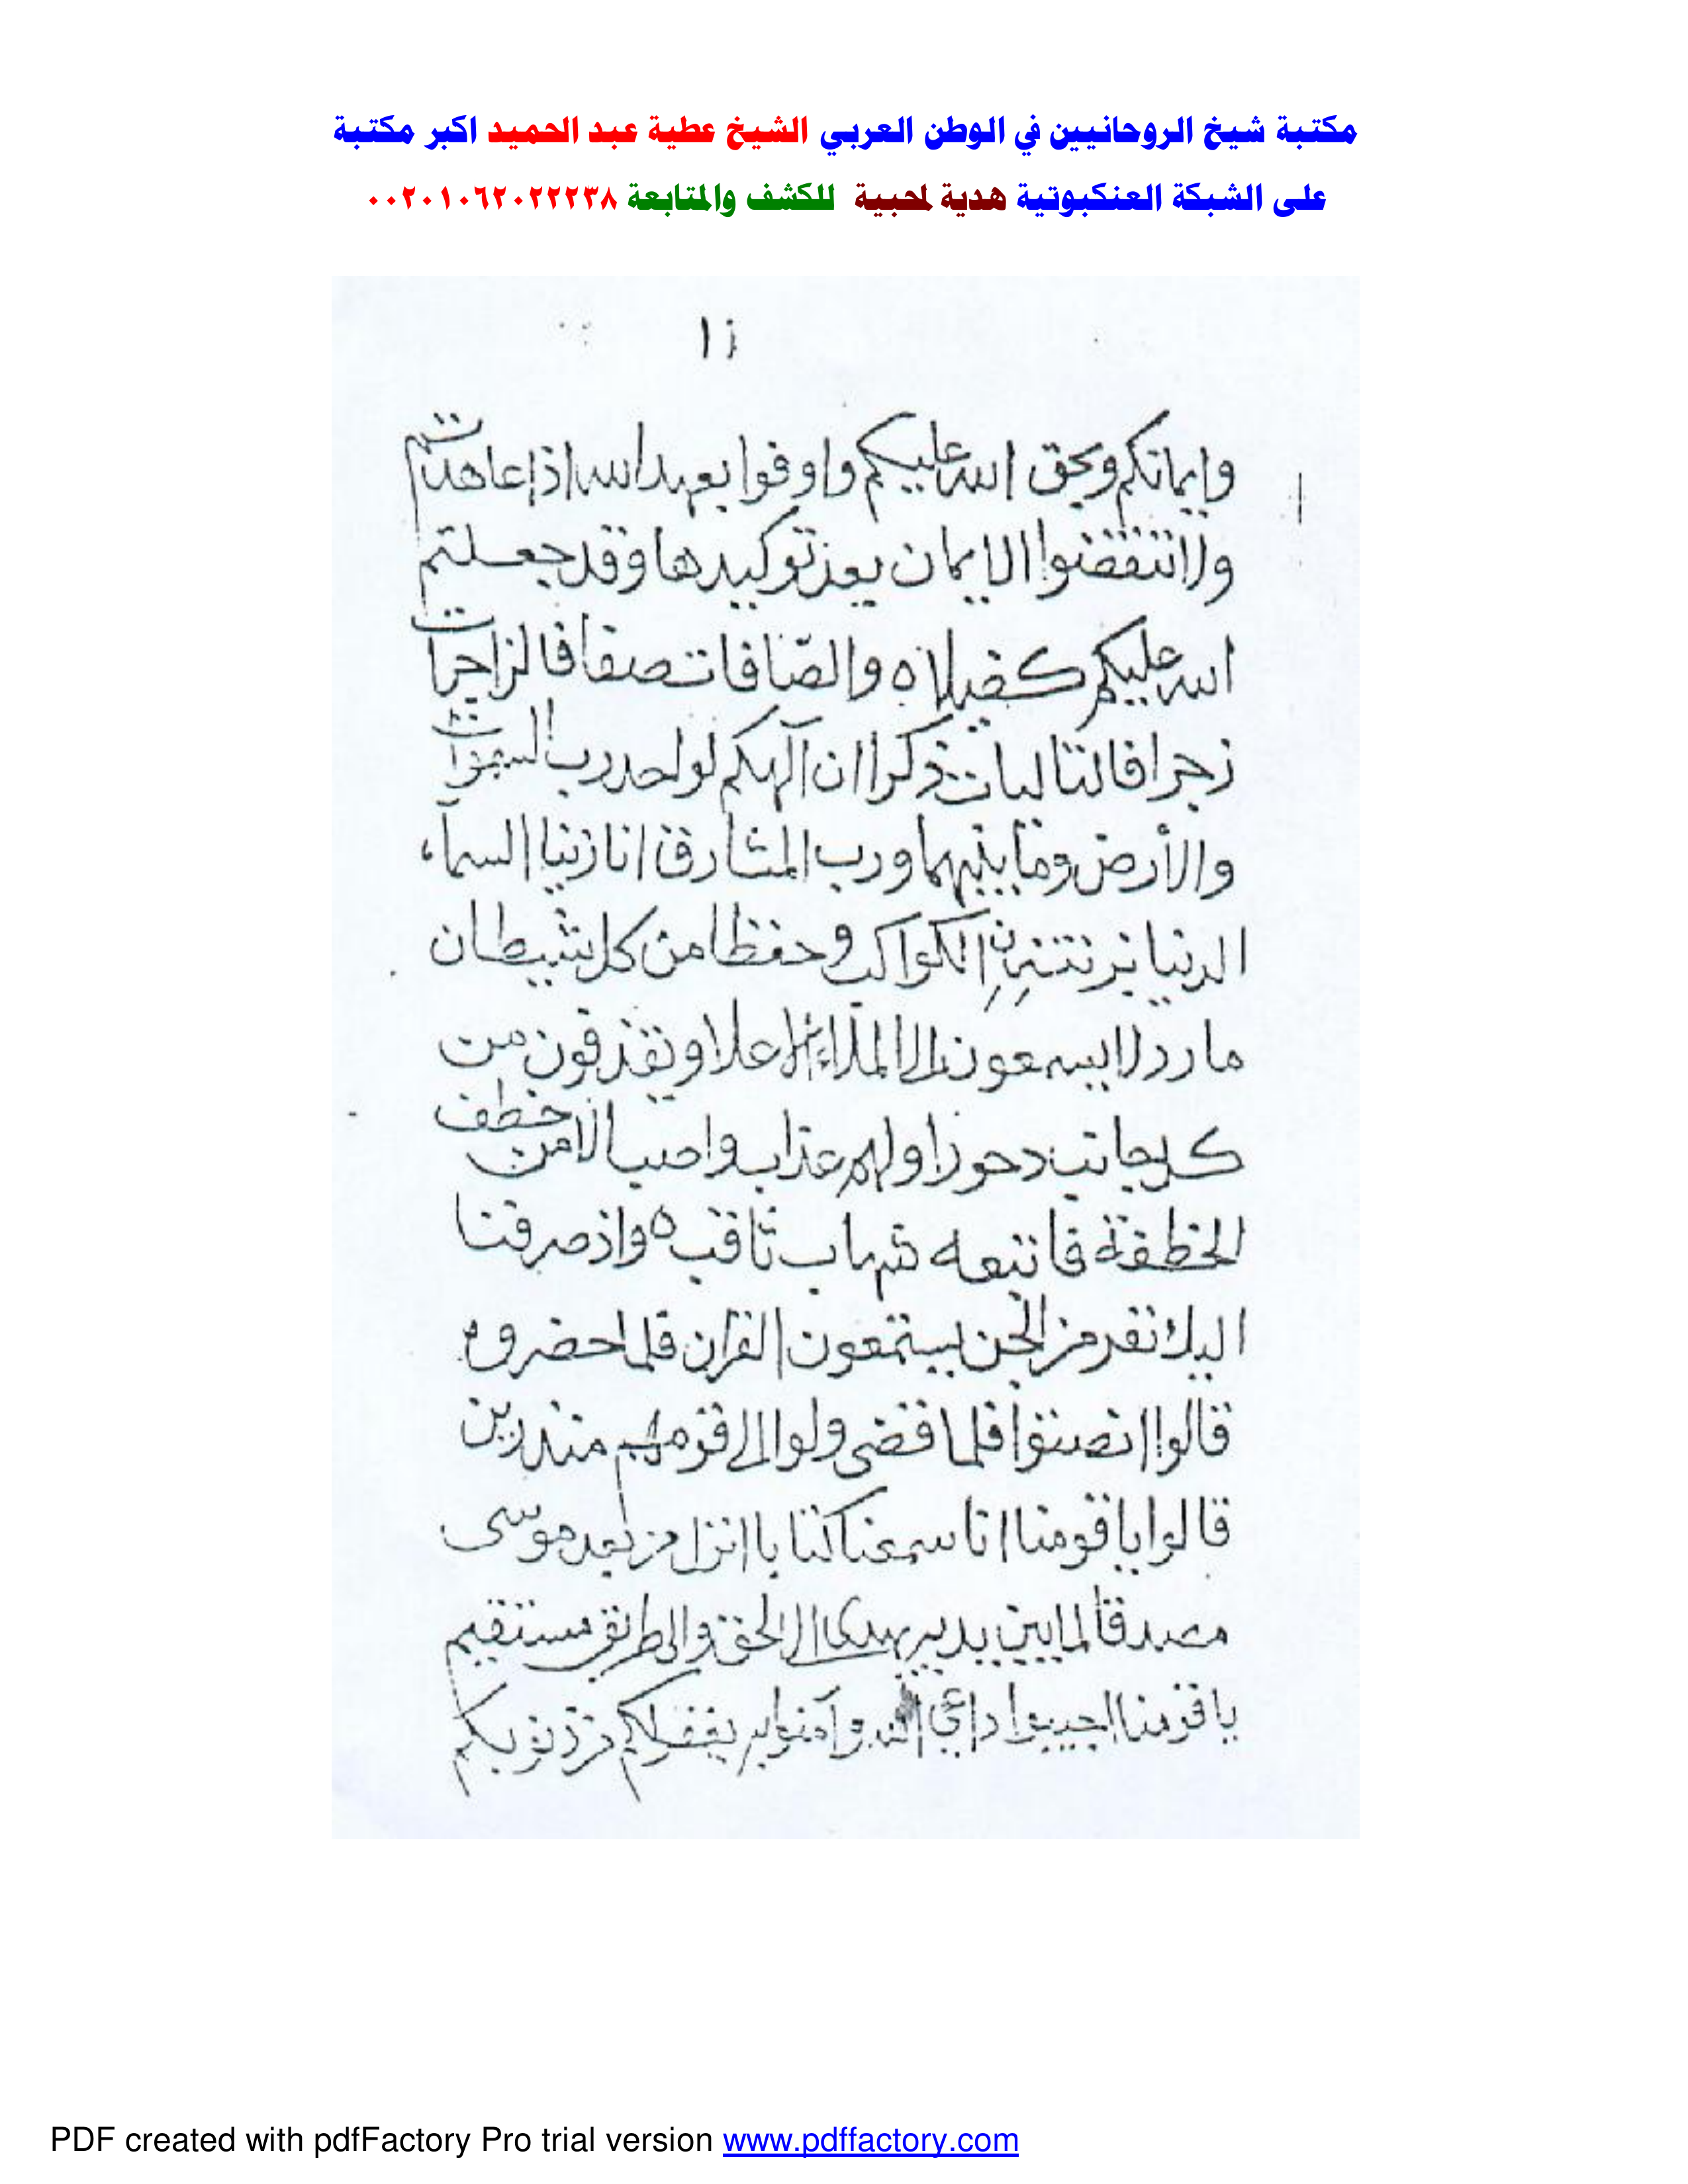 مكتبة شيخ الروحانيين في الوطن العربي الشيخ عطية عبد الحميد اكبر مكتبة
على الشبكة العنكبوتية هدية لمحبية للكشف والمتابعة ٠٠٢٠١٠٦٢٠٢٢٢٣٨
وايمانكم وبحق الله عليكم واوفوا بعهد الله اذا عاهدتم
ولا تنقضوا الايمان بعد توكيدها وقد جعلتم
الله عليكم كفيلا ٥ والصافات صفا فالزاجرات
زجرا فالتاليات ذكرا ان الهكم لواحد رب السموات
والأرض وما بينهما ورب المشارق انا زينا السماء
الدنيا بزينة الكواكب وحفظا من كل شيطان
مارد لا يسمعون الى الملاء الاعلا ويقذفون من
كل جانب دحورا ولهم عذاب واصب الا من خطف
الخطفة فاتبعه شهاب ثاقب ٥ واذ صرفنا
اليك نفر من الجن يستمعون القران فلما حضروه
قالوا انصتوا فلما قضى ولوا الى قومهم منذرين
قالوا يا قومنا انا سمعنا كتابا انزل من بعد موسى
مصدقا لما بين يديه يهدى الى الحق والى طريق مستقيم
يا قومنا اجيبوا داعي الله وآمنوا به يغفر لكم من ذنوبكم
PDF created with pdfFactory Pro trial version www.pdffactory.com